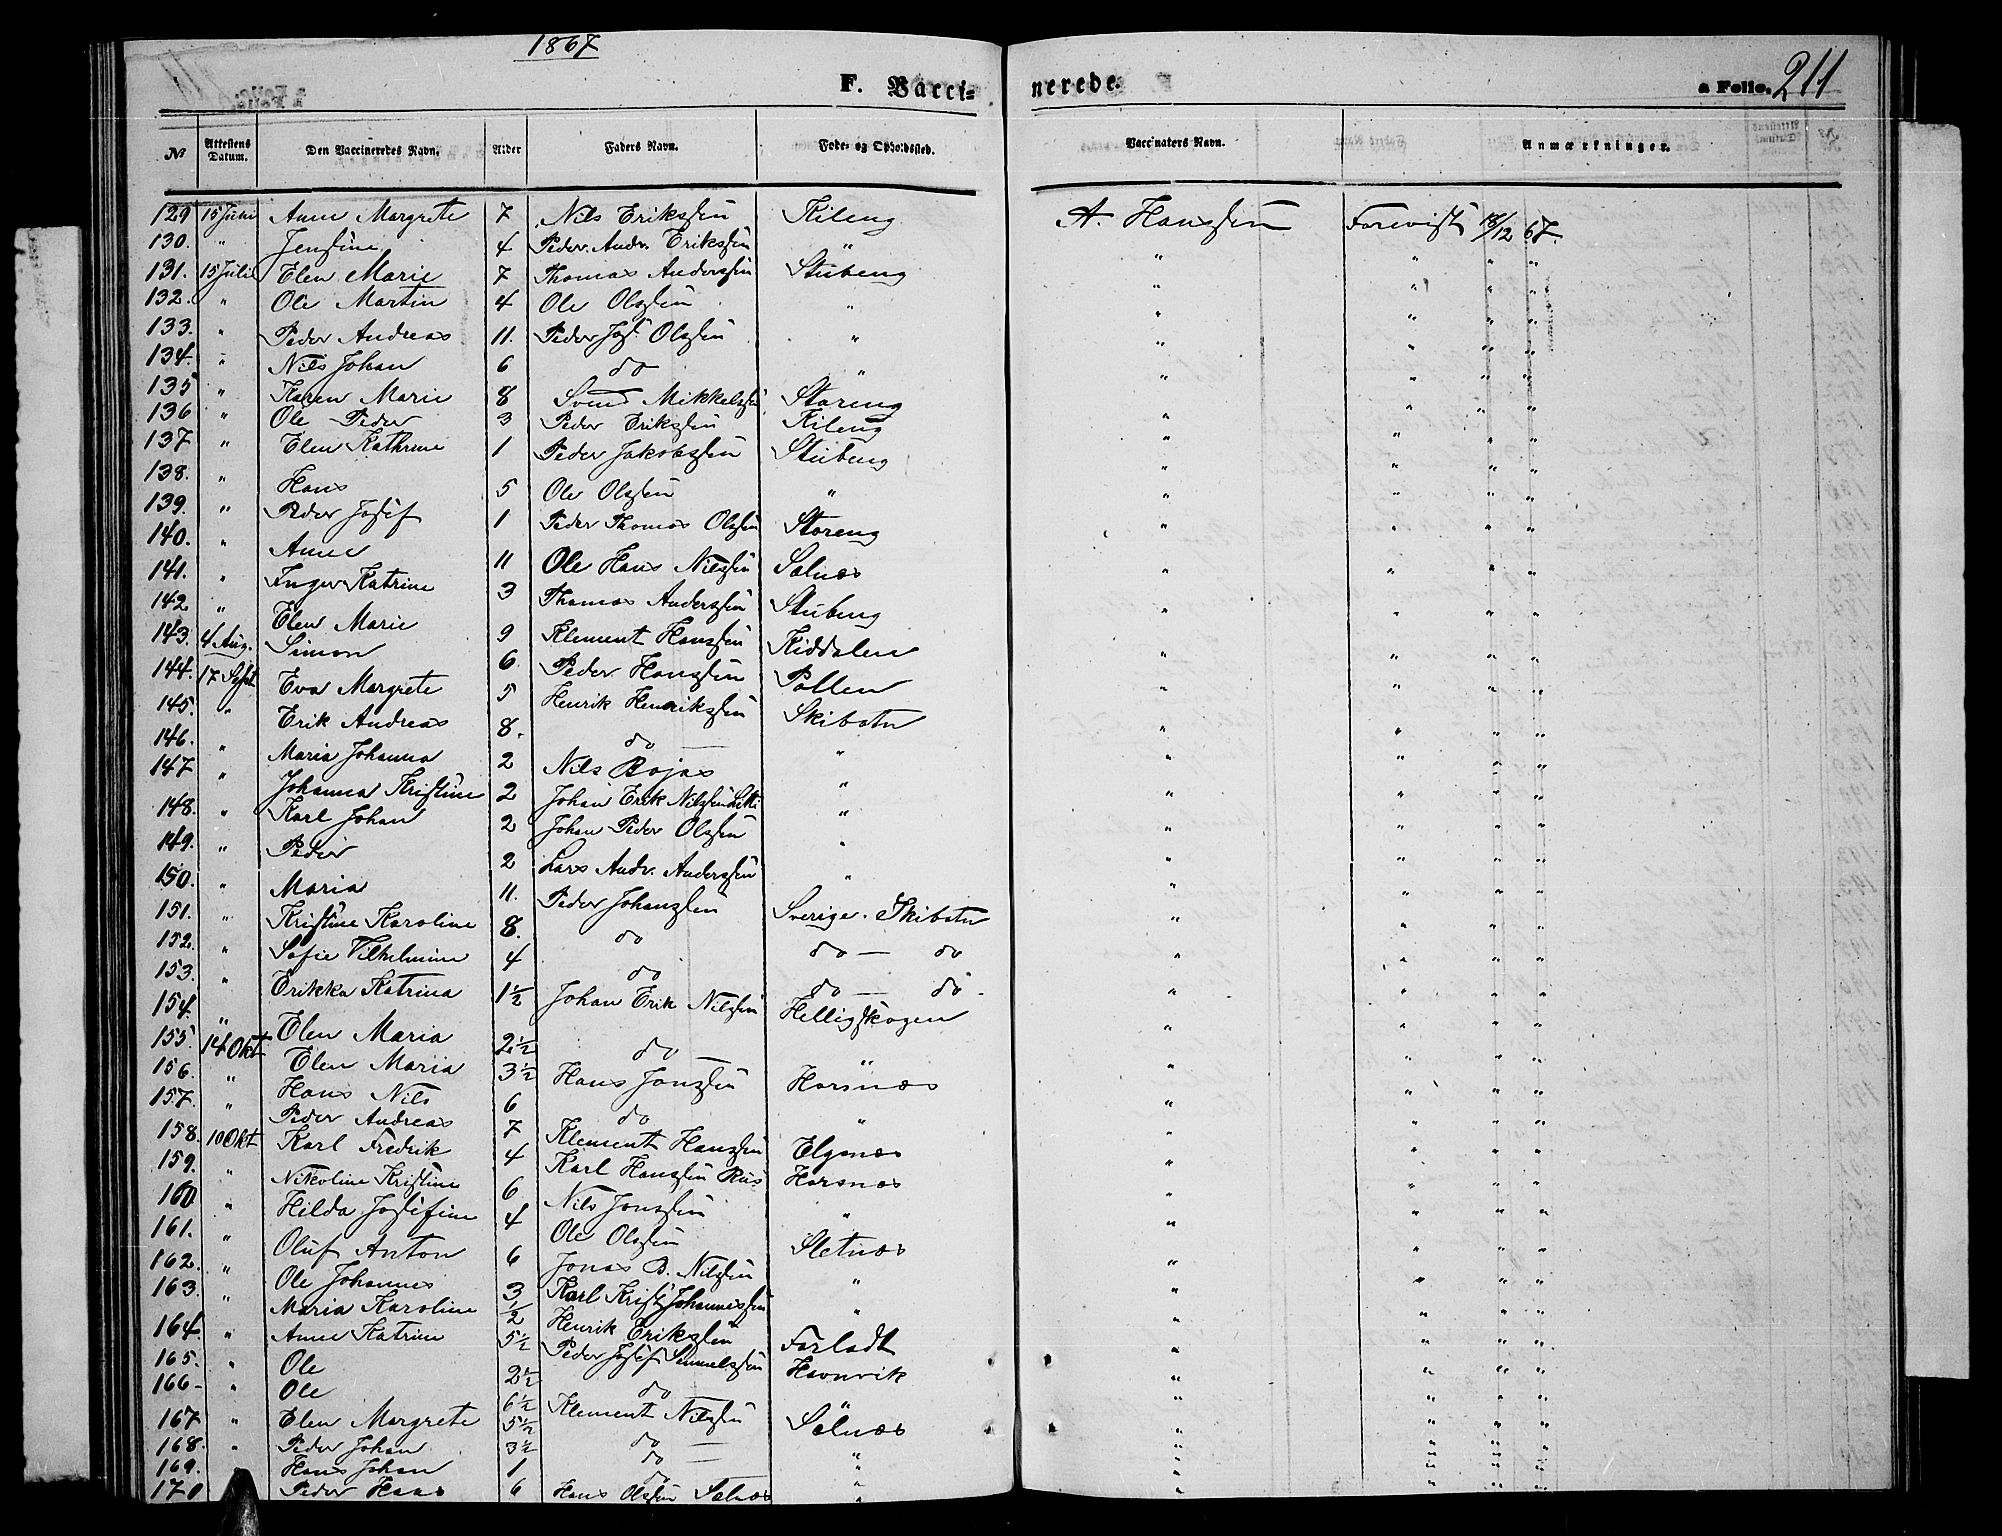 1867
F. Vaccinerede. a Folio. 211
No Attestens Datum. Den Vaccineredes Navn. Alder Faders Navn. Føde- og Opholdssted. Vaccinators Navn. Anmærkninger.
129 15 Juni Anne Margrete 7 Nils Erikssen Kileng A. Hanssen Forevist 18/12 67.
130. " Jensine 4 Peder Andr. Erikssen " " " " "
131. 15 Julii Elen Marie 7 Thomas Anderssen Stubeng " " " "
132. " Ole Martin 4 Ole Olssen " " " " "
133. " Peder Andreas 11. Peder Jos. Olssen " " " " "
134. " Nils Johan 6 do " " " " "
135 " Karen Marie 8 Svend Mikkelssen Storeng " " " "
136 " Ole Peder 3 Peder Erikssen Kileng " " " "
137 " Elen Kathrine 1 Peder Jakobssen Stubeng " " " "
138. " Hans 5 Ole Olssen " " " " "
139. " Peder Josef 1 Peder Thomas Olssen Storeng " " " "
140. " Anne 11 Ole Hans Nilssen Solnes " " " "
141. " Inger Katrine 3 Thomas Anderssen Stubeng " " " "
142. " Elen Marie 9 Klement Hanssen Kiddalen " " " "
143. 4 Aug. Simon 6 Peder Hanssen Pollen " " " "
144. 17 Sept Eva Margrete 5 Henrik Henrikssen Skibotn " " " "
145. " Erik Andreas 8. do " " " " "
146. " Maria Johanna 2 Nils Bojas " " " " "
147 " Johanna Kristine 2 Johan Erik Nilssen " " " " "
148. " Karl Johan 2 Johan Peder Olssen " " " " "
149. " Peder 2 Lars Andr. Anderssen " " " " "
150. " Maria 11. Peder Johanssen Sverige. Skibotn " " " "
151. " Kristine Karoline 8. do do — do " " " "
152. " Sofie Vilhelmine 4 do do — do " " " "
153. " Erikka Katrina 1½ Johan Erik Nilssen Helligskogen " " " "
154. " Elen Maria 2½ do " " " " "
155. 14 Okt Elen Maria 3½ Hans Jonssen Horsnes " " " "
156. " Hans Nils 6 do " " " " "
157. " Peder Andreas 7 Klement Hanssen Elgsnes " " " "
158. 10 Okt Karl Fredrik 4 Karl Hanssen Rus Horsnes " " " "
159. " Nikoline Kristine 6 Nils Jonssen " " " " "
160 " Hilda Josefine 4 Ole Olssen Sletnes " " " "
161. " Oluf Anton 6 Jonas B. Nilssen " " " " "
162. " Ole Johannes 3 Karl Krist. Johannessen " " " " "
163. " Maria Karoline ½ Henrik Erikssen Forladt " " " "
164. " Anne Katrine 5½ Peder Josef Samuelssen Havnvik " " " "
165. " Ole 2½ do " " " "
166- " Ole 6½ Klement Nilssen Solnes " " " "
167 " Elen Margrete 5½ do " " " " "
168. " Peder Johan 3½ do " " " " "
169. " Hans Johan 1 do " " " " "
170 Peder Hans 6 Hans Olssen Solnes " " " " "